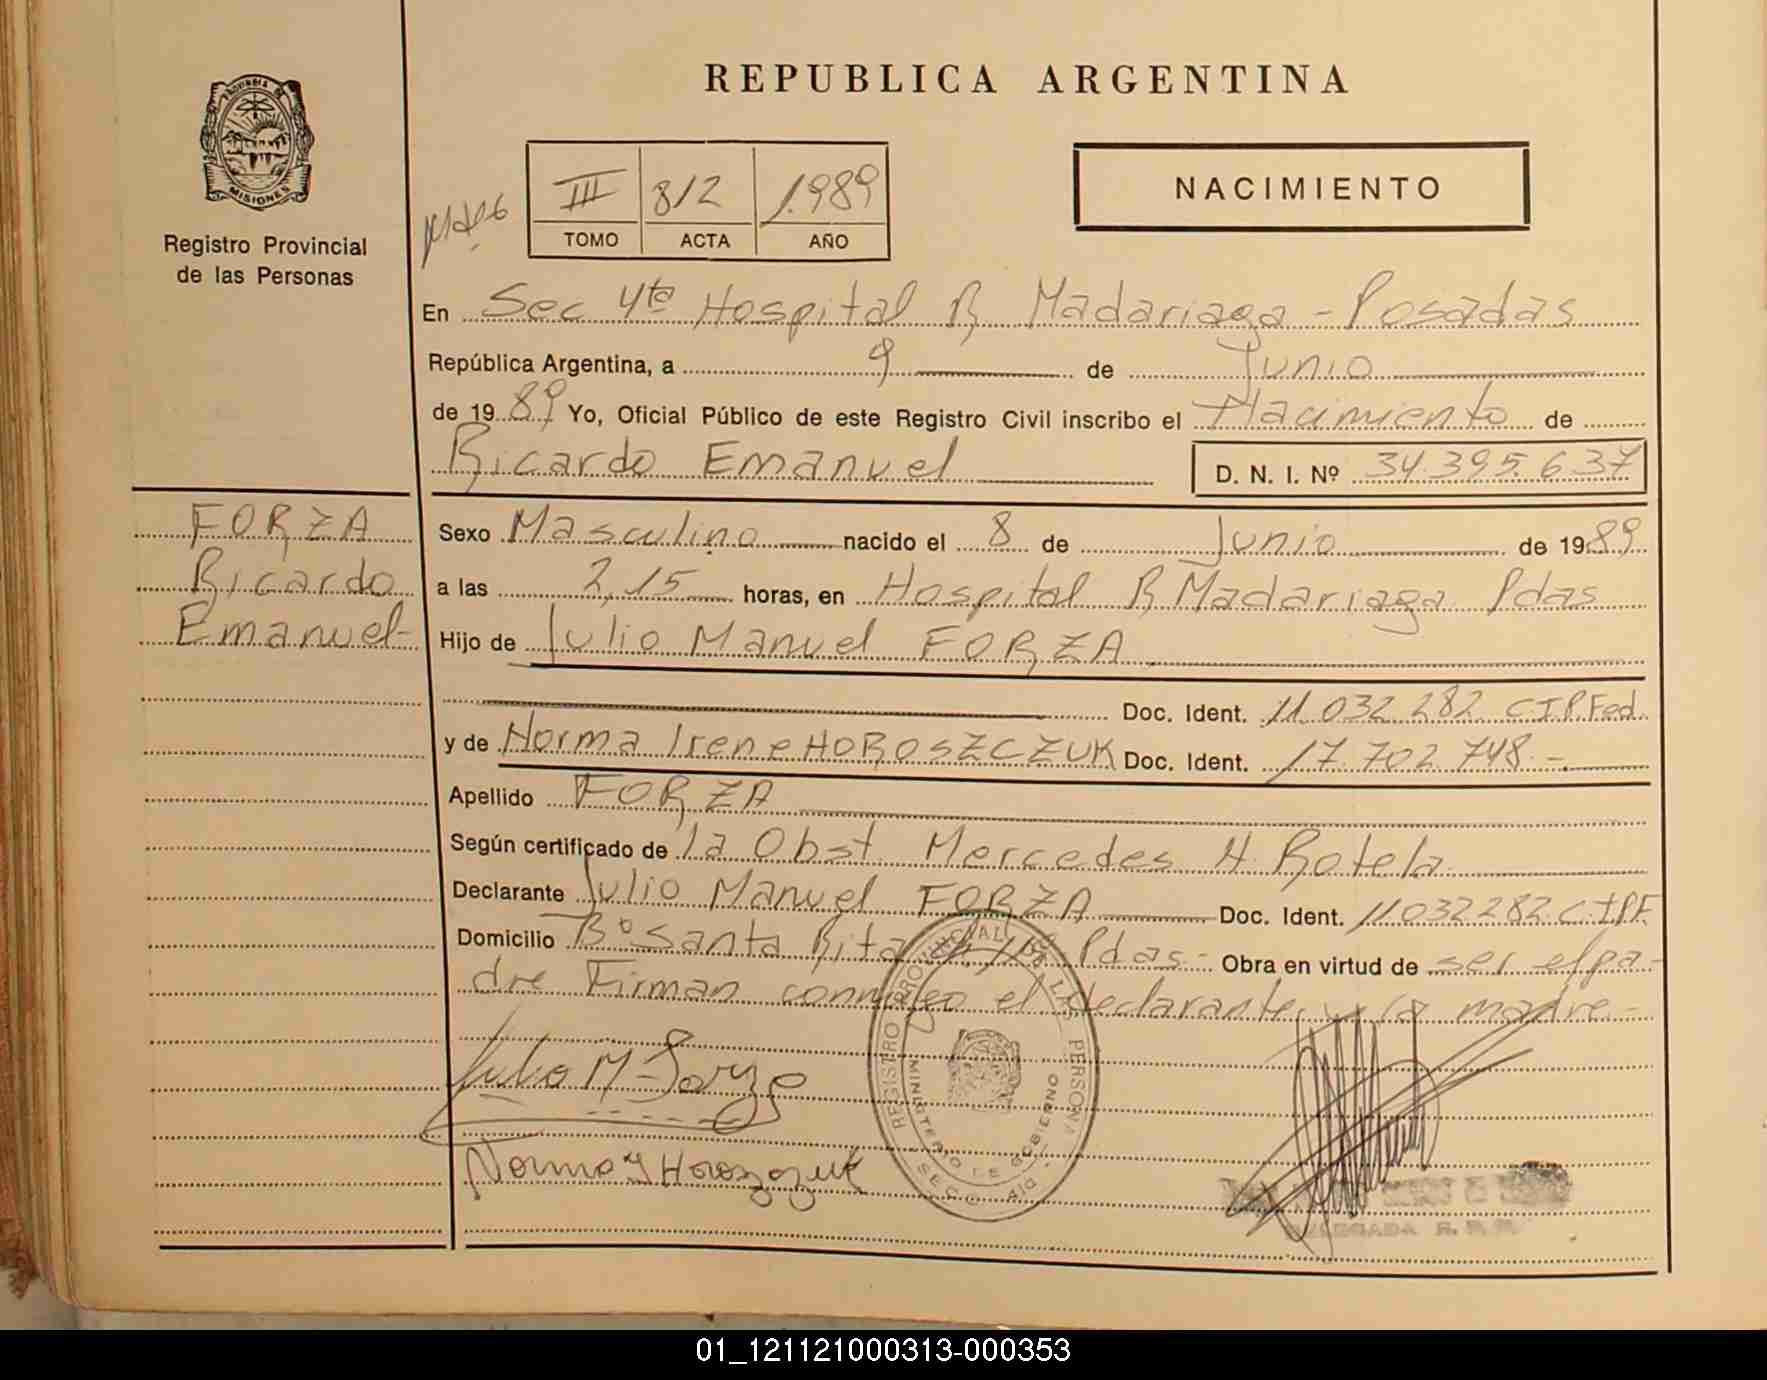 REPUBLICA ARGENTINA
PROVINCIA DE
MISIONES
Registro Provincial
de las Personas
III 812 1.989
TOMO ACTA AÑO
NACIMIENTO
En Sec 4ta Hospital R Madariaga - Posadas
República Argentina, a 9 de Junio
de 1989 Yo, Oficial Público de este Registro Civil inscribo el Nacimiento de
Ricardo Emanuel D. N. I. Nº 34.395.637
FORZA
Ricardo
Emanuel-
Sexo Masculino nacido el 8 de Junio de 1989
a las 2,15 horas, en Hospital R Madariaga Pdas
Hijo de Julio Manuel FORZA
Doc. Ident. 11.032.282 C.I.P.Fed.
y de Norma Irene HOROSZCZUK Doc. Ident. 17.702.748.-
Apellido FORZA
Según certificado de la Obst. Mercedes H. Rotela
Declarante Julio Manuel FORZA Doc. Ident. 11.032.282 C.I.P.F.
Domicilio Bº Santa Rita Pdas.- Obra en virtud de ser el pa-
dre Firman conmigo el declarante y la madre.-
Julio M Forza
Norma I Horoszczuk
REGISTRO PROVINCIAL DE LAS PERSONAS
MINISTERIO DE GOBIERNO
DELEGADA R. P. P.
01_121121000313-000353